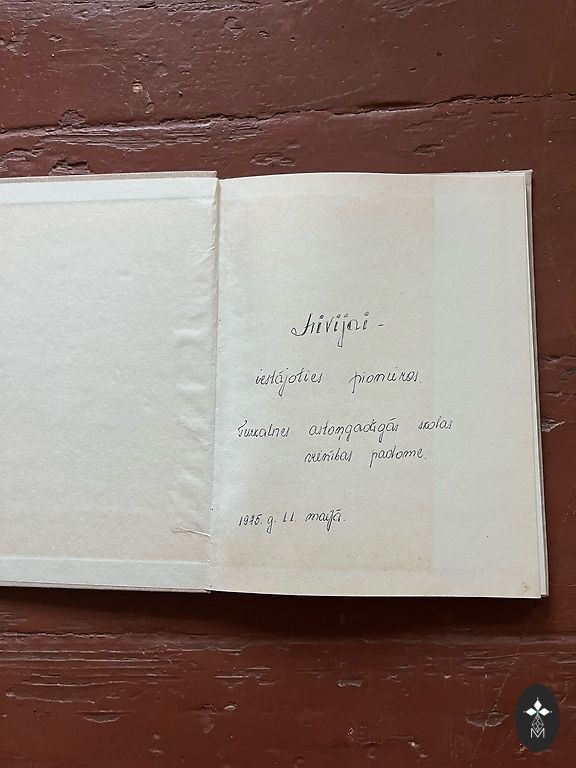 Līvijai -
iestājoties pionieros.
Turkalnes astoņgadīgās skolas
vienības padome.
1975. g. 11. maijā.
M